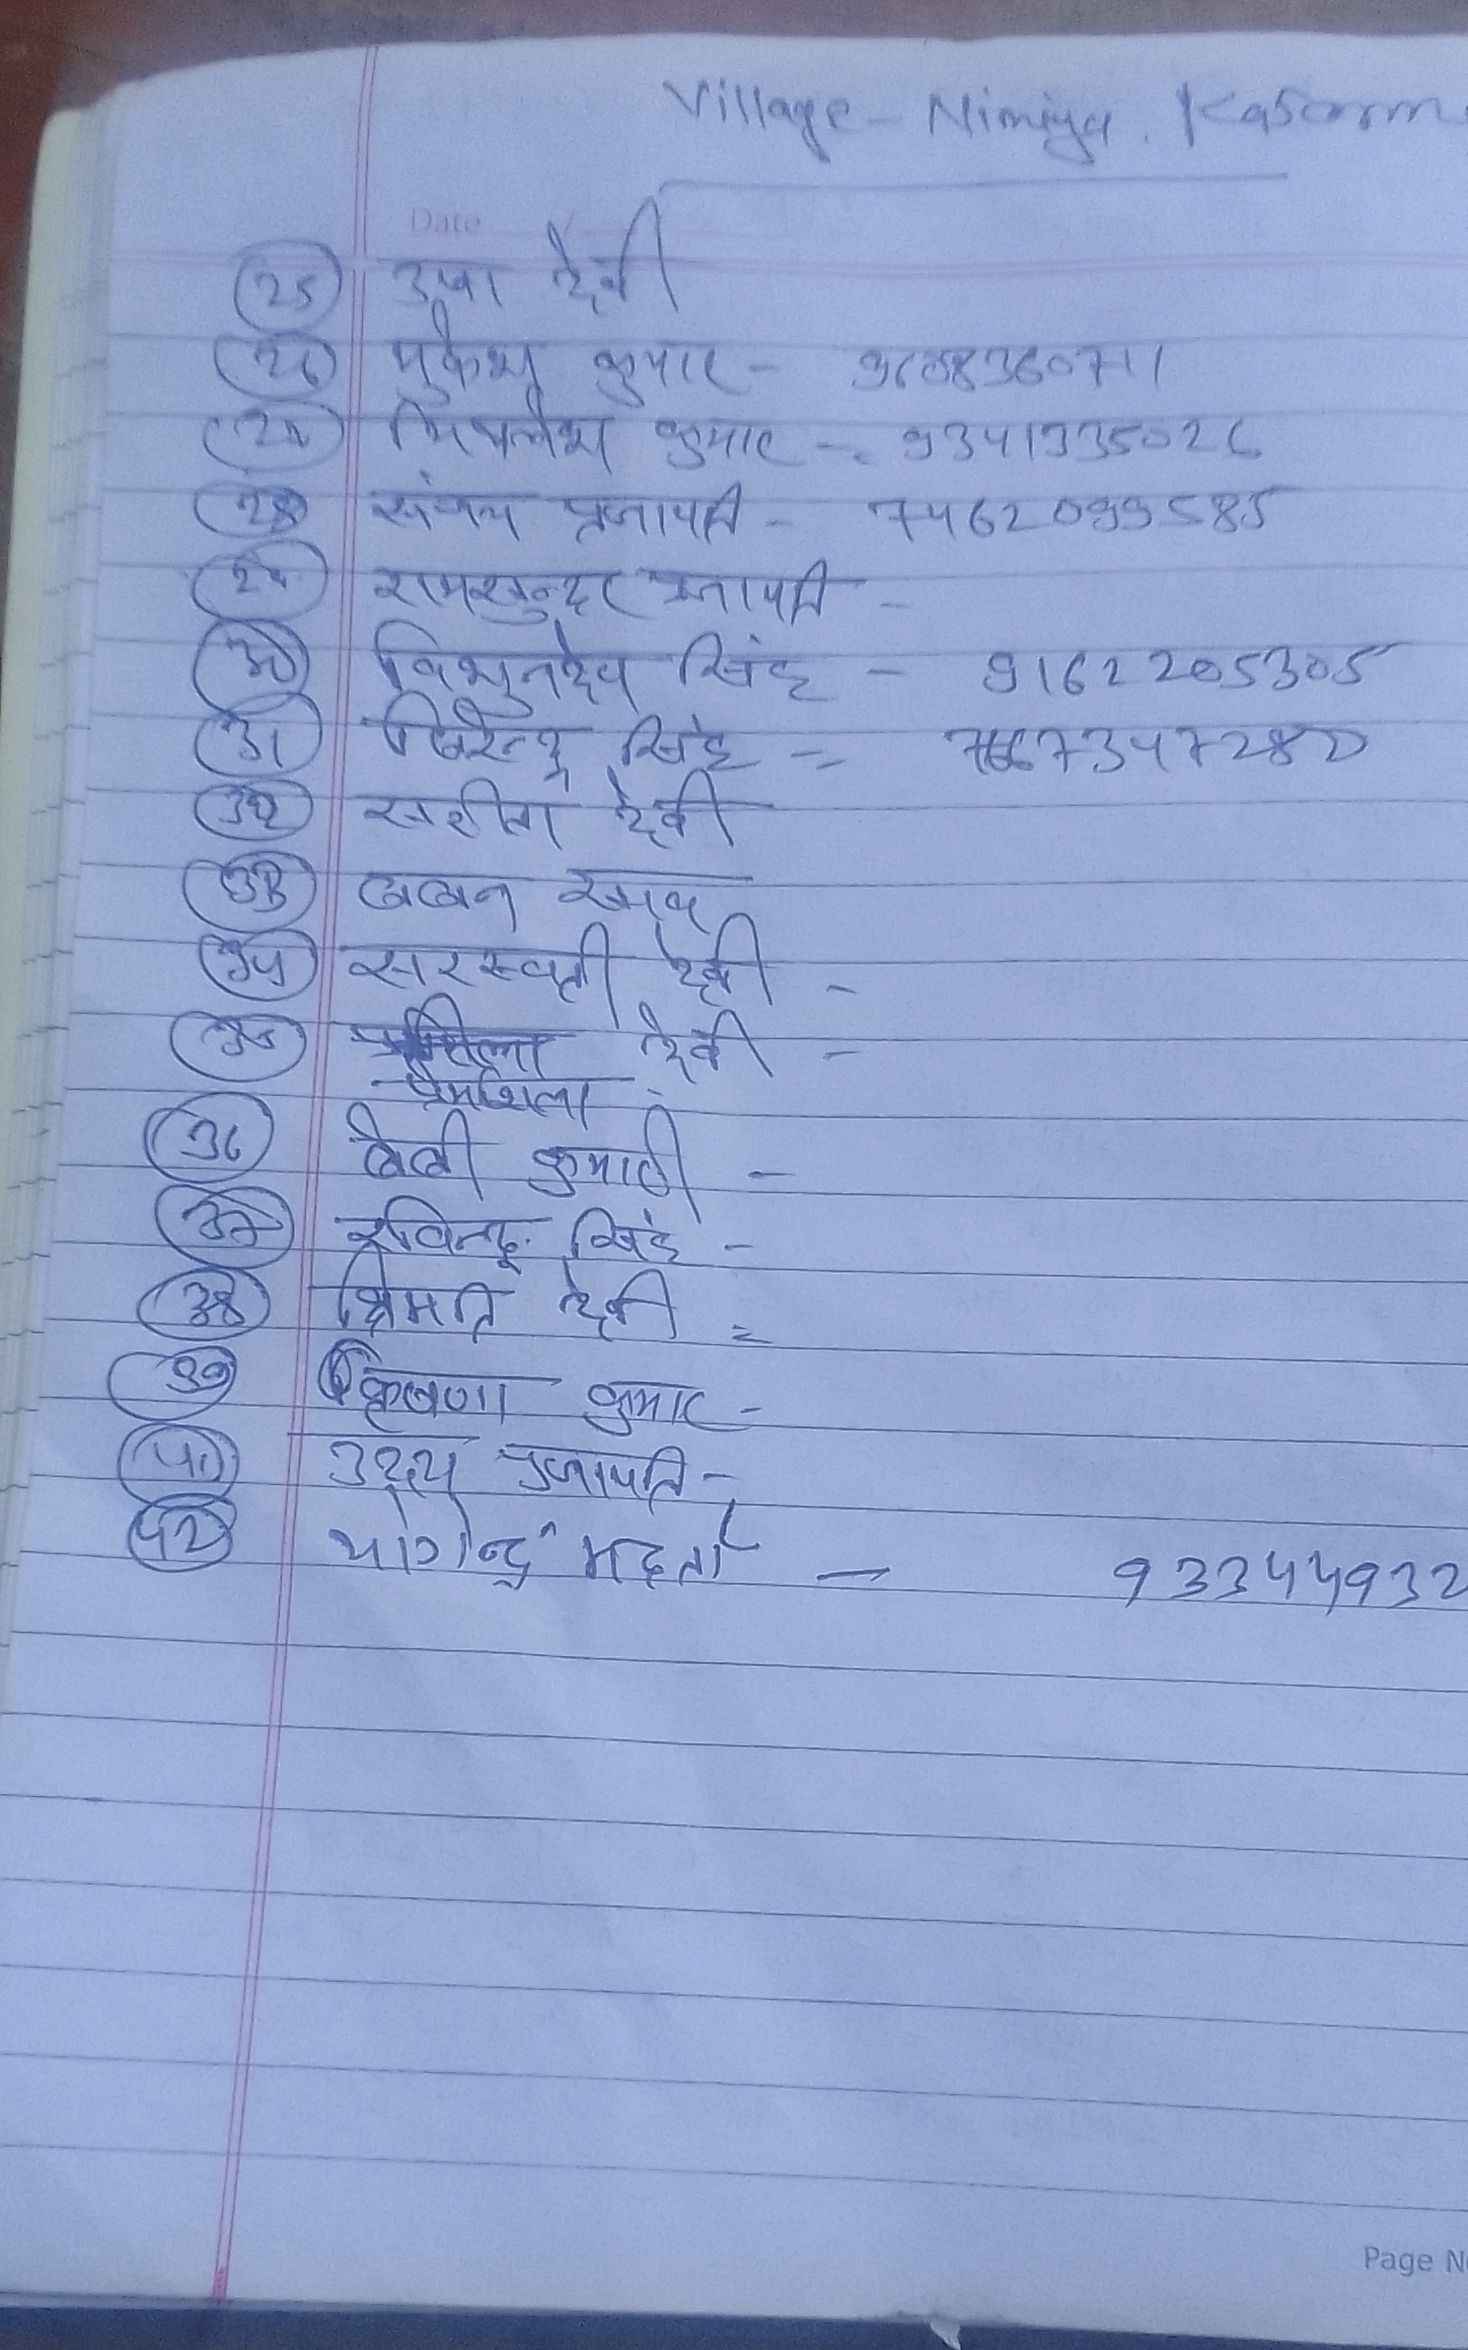 Village - Nimiya.
Date
25 उषा देवी
26 मुकेश कुमार - 9608360711
27 मिथलेश कुमार - 9341935026
28 संजय प्रजापति - 7462099585
29 रामसुन्दर प्रजापति -
30 विशुनदेव सिंह - 9162205305
31 विरेन्द्र सिंह = 7667347280
32 सरीता देवी
33 बबन
34 सरस्वती देवी -
35 देवी -
प्रेमशिला
36 बेबी कुमारी -
37 रविन्द्र सिंह -
38 श्रिमति देवी =
39 क्रिष्णा कुमार -
41 उदय प्रजापति -
42 योगेन्द्र महतो - 93344932
Page N